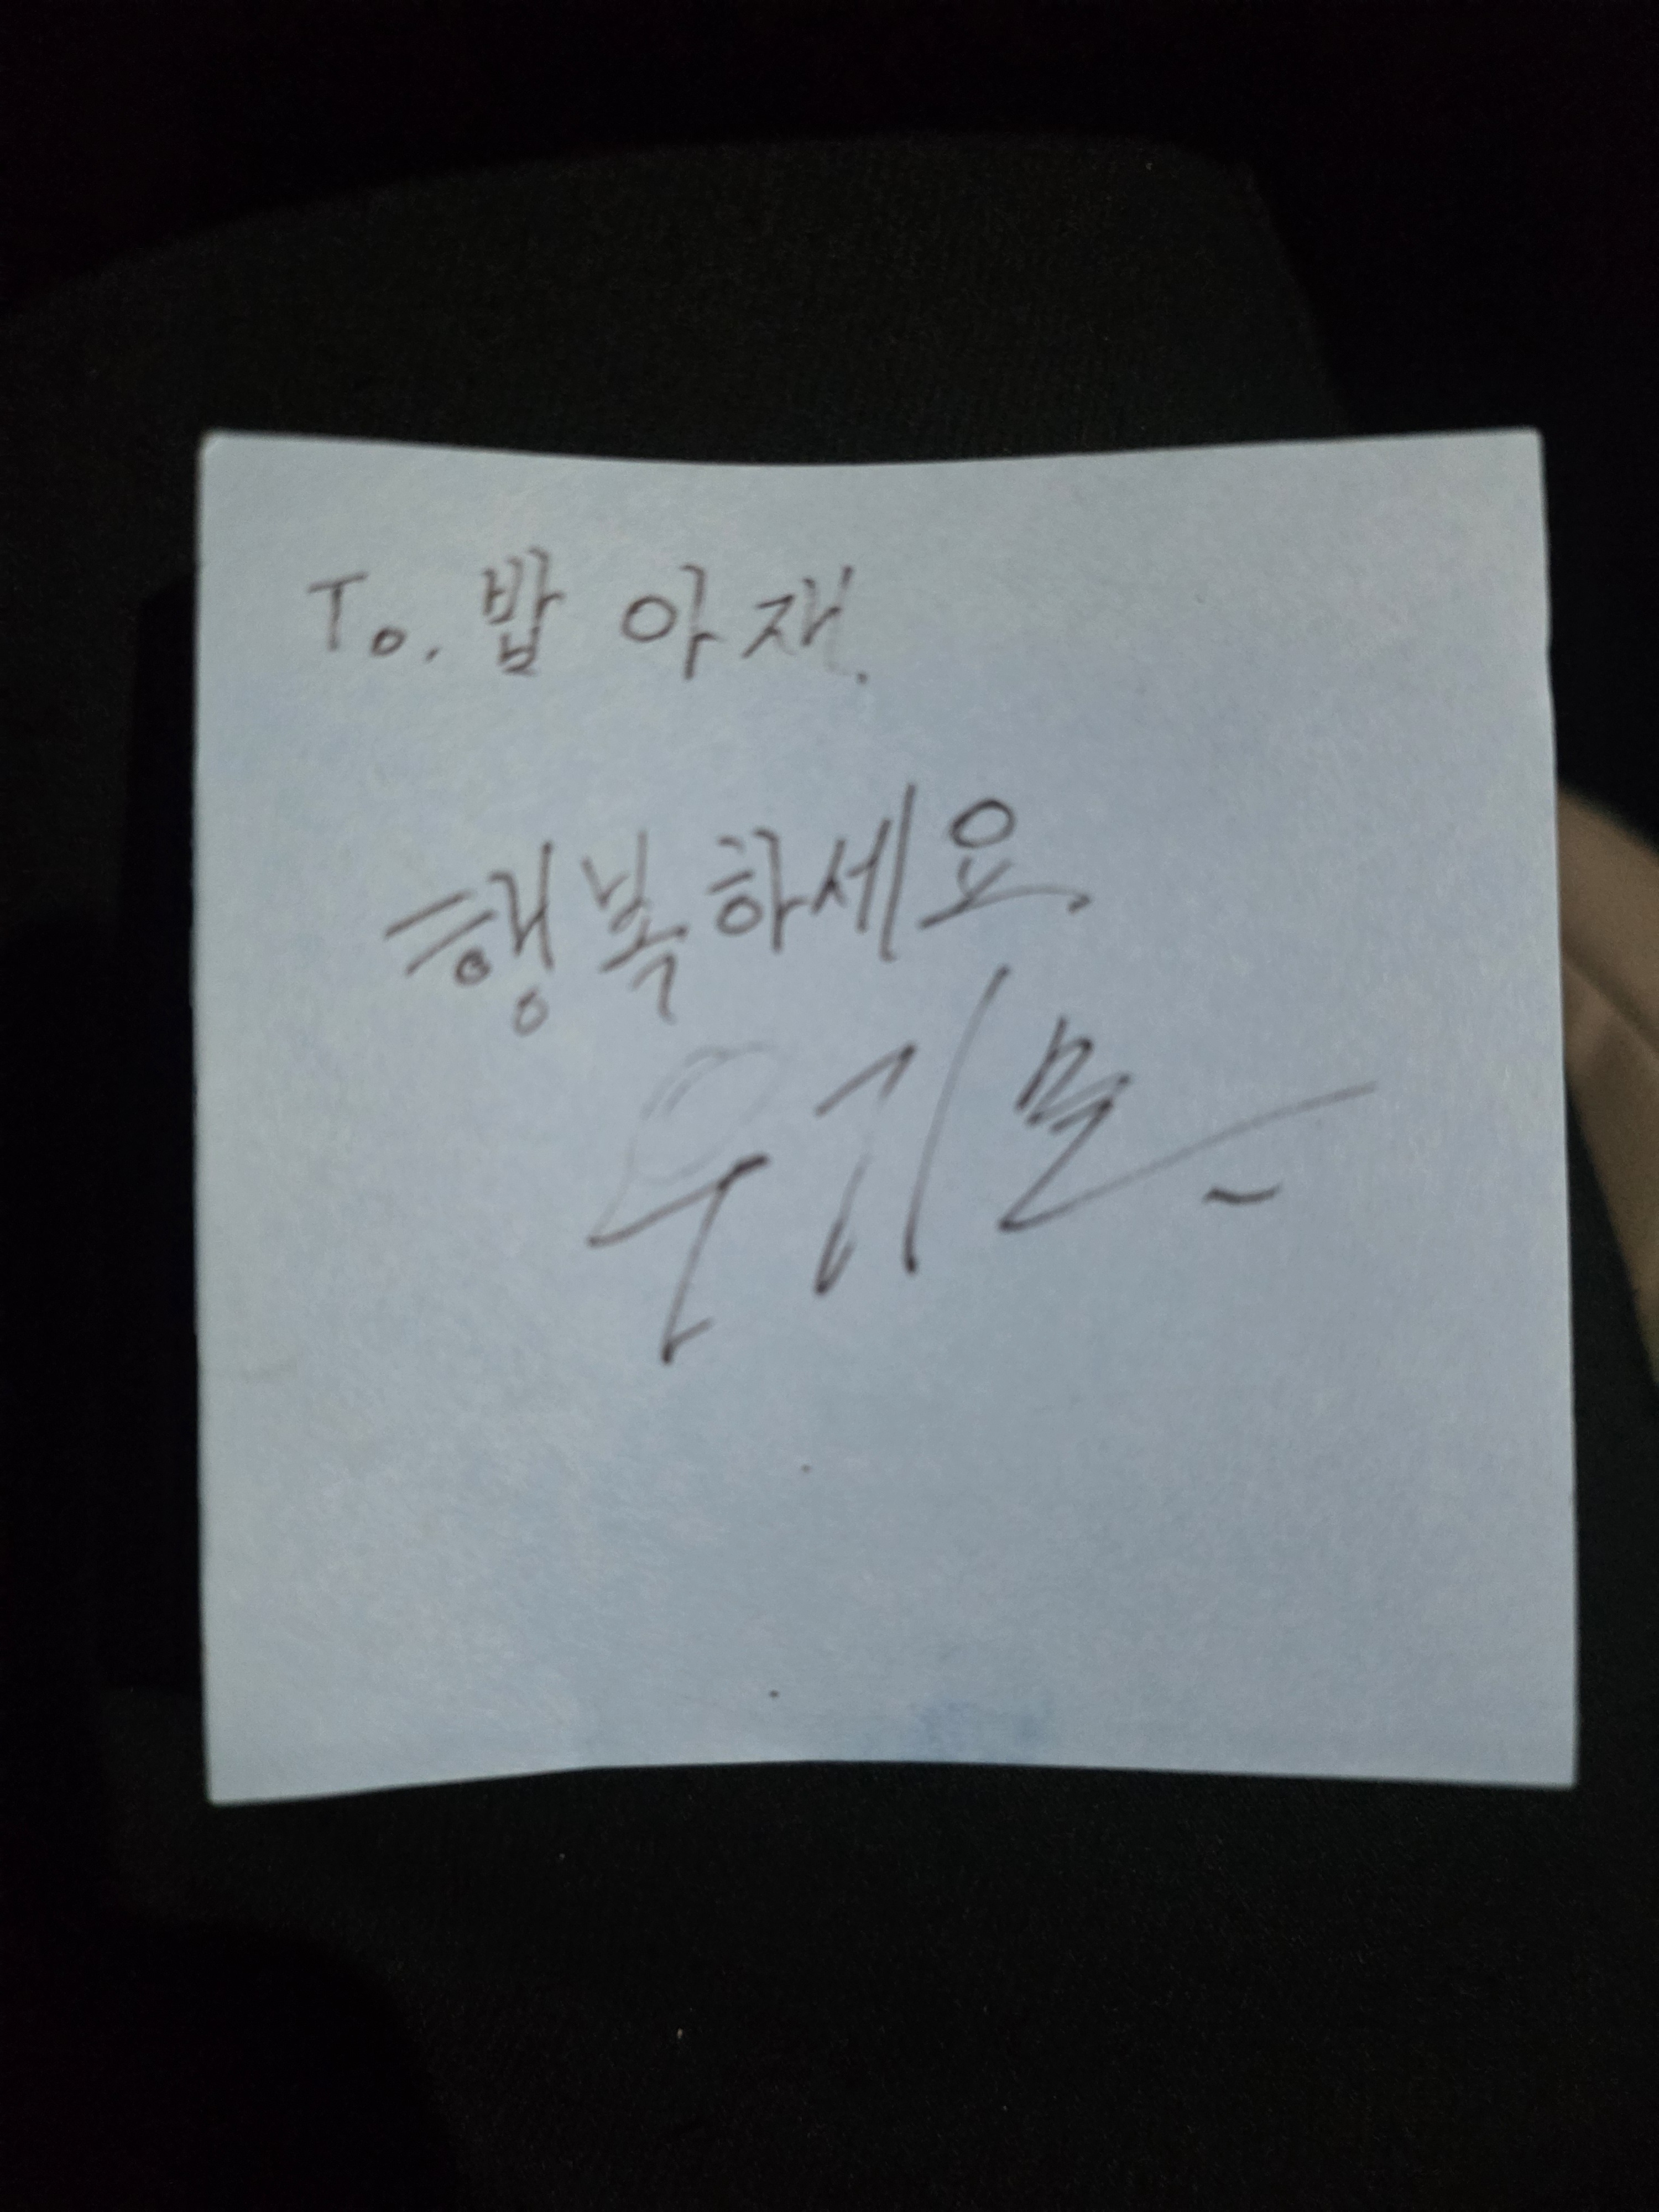 To. 밥 아재.
행복하세요.